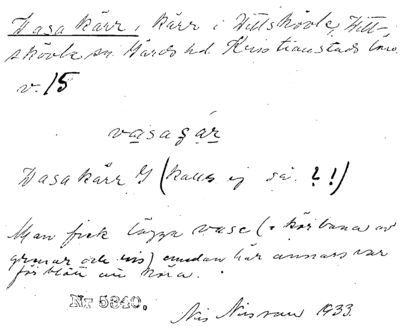 Vasa kärr, kärr i Vittskövle, Vitt-
skövle sn Gärds hd. Kristianstads län.
v. 15
vasaçár
Vasa kärr G (kallas ej så. ?!)
Man fick lägga vase (= körbana av
grenar och ris) emedan här annars var
för blött att köra.
Nr 5840.
Nils Nilsson 1933.